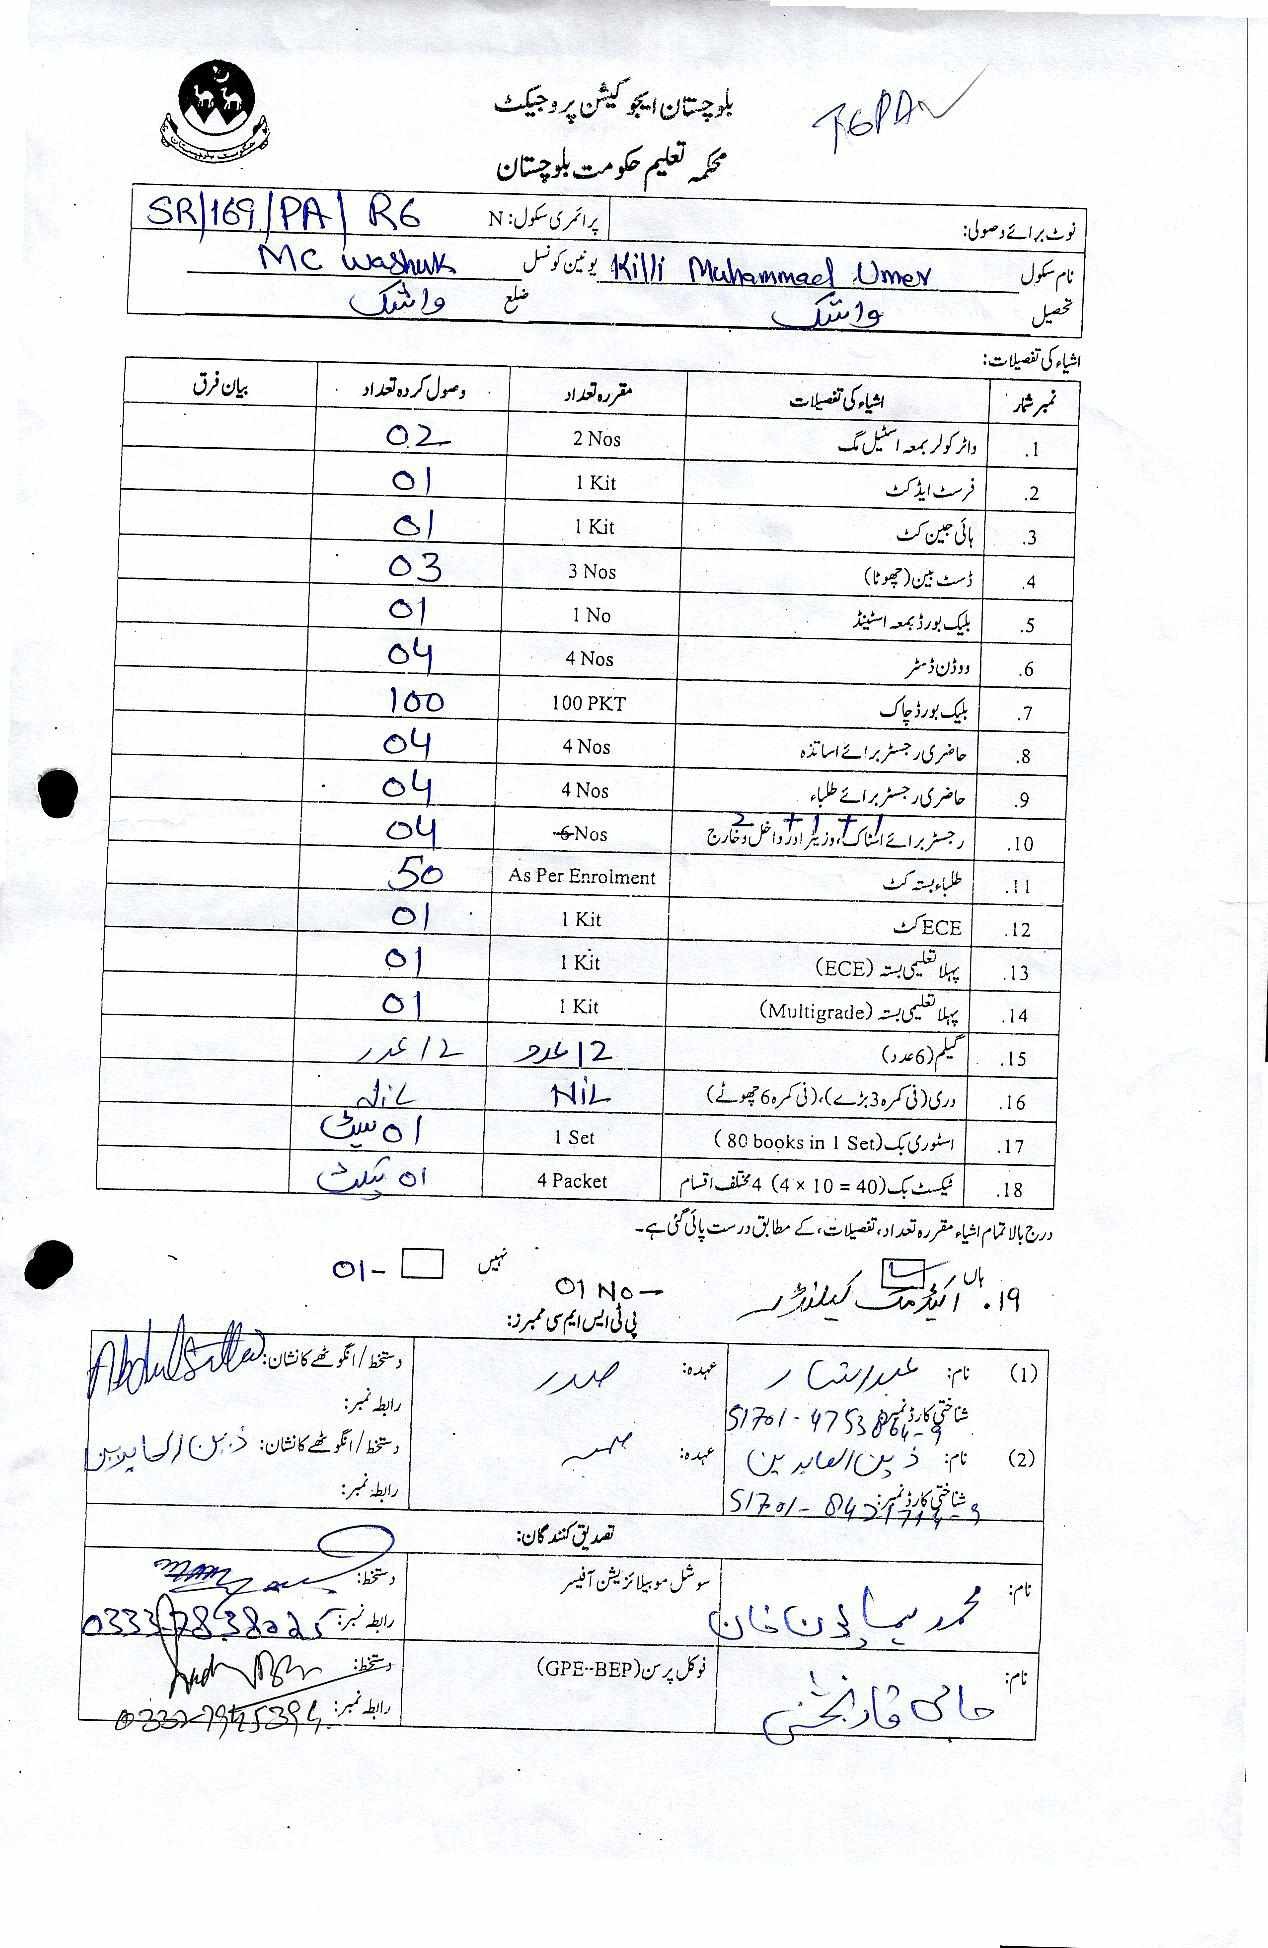 بلوچستان ایجوکیشن پروجیکٹ
محکمہ تعلیم حکومت بلوچستان
نوٹ برائے وصولی: پرائمری سکول: N SR/169/PA/ R6
نام سکول Killi Muhammad Umer یونین کونسل MC Washuk
تحصیل واشک ضلع واشک
اشیاء کی تفصیلات:
نمبر شمار اشیاء کی تفصیلات مقررہ تعداد وصول کردہ تعداد بیان فرق
1. واٹر کولر بمعہ اسٹیل مگ 2 Nos 02
2. فرسٹ ایڈ کٹ 1 Kit 01
3. ہائی جین کٹ 1 Kit 01
4. ڈسٹ بین (چھوٹا) 3 Nos 03
5. بلیک بورڈ بمعہ اسٹینڈ 1 No 01
6. ووڈن ڈسٹر 4 Nos 04
7. بلیک بورڈ چاک 100 PKT 100
8. حاضری رجسٹر برائے اساتذہ 4 Nos 04
9. حاضری رجسٹر برائے طلباء 4 Nos 04
2+1+1
10. رجسٹر برائے اسٹاک، وزیٹر اور داخل و خارج 6 Nos 04
11. طلباء بستہ کٹ As Per Enrolment 50
12. ECE کٹ 1 Kit 01
13. پہلا تعلیمی بستہ (ECE) 1 Kit 01
14. پہلا تعلیمی بستہ (Multigrade) 1 Kit 01
15. گیلم (6 عدد) 12 عدد 12 عدد
16. دری (فی کمرہ 3 بڑے)، (فی کمرہ 6 چھوٹے) NIL NIL
17. اسٹوری بک (80 books in 1 Set) 1 Set 01 سیٹ
18. ٹیکسٹ بک (4 x 10 = 40) 4 مختلف اقسام 4 Packet 01 پیکٹ
درج بالا تمام اشیاء مقررہ تعداد، تفصیلات، کے مطابق درست پائی گئی ہے۔
ہاں نہیں
۱۹. اکیڈمک کیلنڈر 01 No- 01-
پی ٹی ایس ایم سی ممبرز:
(1) نام: عبدالستار عہدہ: صدر دستخط / انگوٹھے کا نشان: Abdul Sattar
شناختی کارڈ نمبر: 51701-4753864-9 رابطہ نمبر:
(2) نام: ذین العابدین عہدہ: ممبر دستخط / انگوٹھے کا نشان: ذین العابدین
شناختی کارڈ نمبر: رابطہ نمبر:
تصدیق کنندگان:
نام: محمد خان سوشل موبیلائزیشن آفیسر دستخط:
رابطہ نمبر: 0333-7838225
نام: حاجی قادر بخش فوکل پرسن (GPE-BEP) دستخط:
رابطہ نمبر: